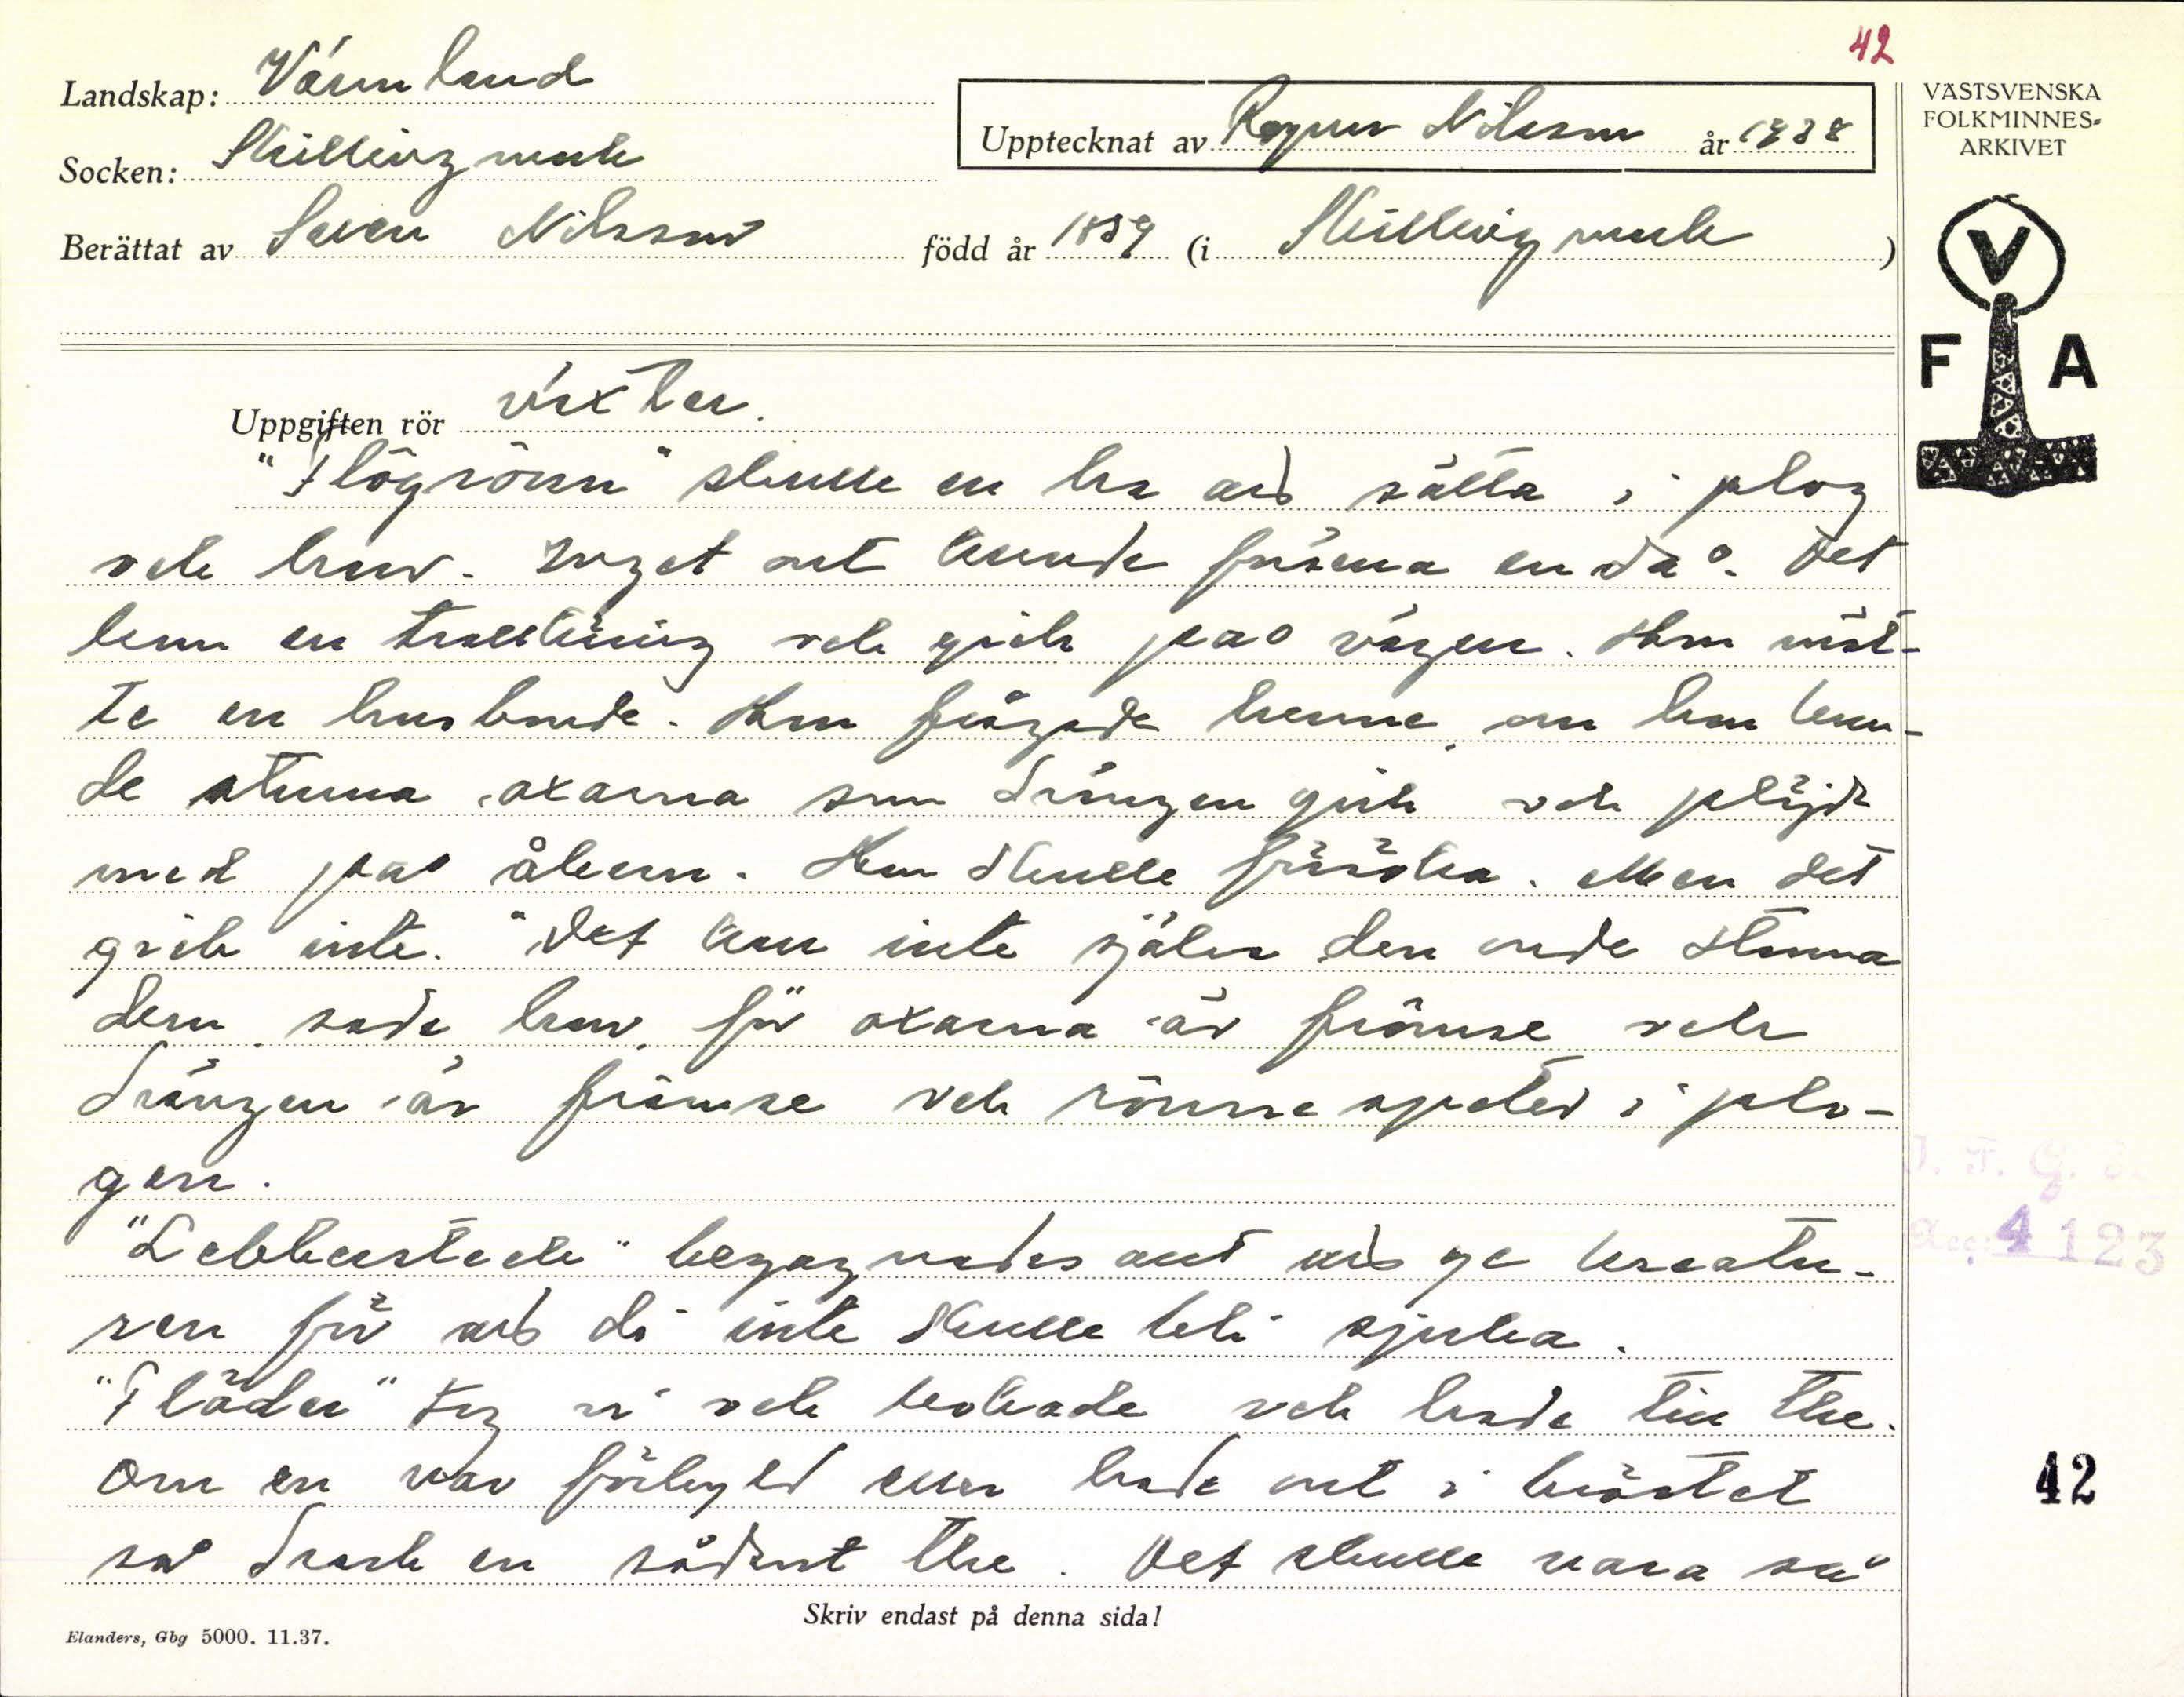 42
Landskap: Värmland
Upptecknat av Ragnar Nilsson år 1938
Socken: Skillingmark
Berättat av Sven Nilsson född år 1859 (i Skillingmark)
VÄSTSVENSKA
FOLKMINNES-
ARKIVET
V
F A
Uppgiften rör växter.
"Flögrönn" skulle en ha att sätta i plog
och harv. Inget ont kunde främa en då. Det
kom en trollkäring och gick på vägen. Hon möt-
te en husbonde. Han frågade henne, om hon kun-
de stinna oxarna som drängen gick och plöjde
med på åkern. Hon skulle försöka. Men det
gick inte. "Det kan inte själva den onde stinna
dem, sade hon, för oxarna är främse och
drängen är främse och rönnespeler i plo-
gen.
"Lebbersteck" begagnades mot att ge kreatu-
ren för att di inte skulle bli sjuka.
"Fläder" tog vi och kokade och hade till the.
Om en var förkyld eller hade ont i bröstet
så drack en sådant the. Det skulle vara så
Skriv endast på denna sida!
Elanders, Gbg 5000. 11.37.
4123
42